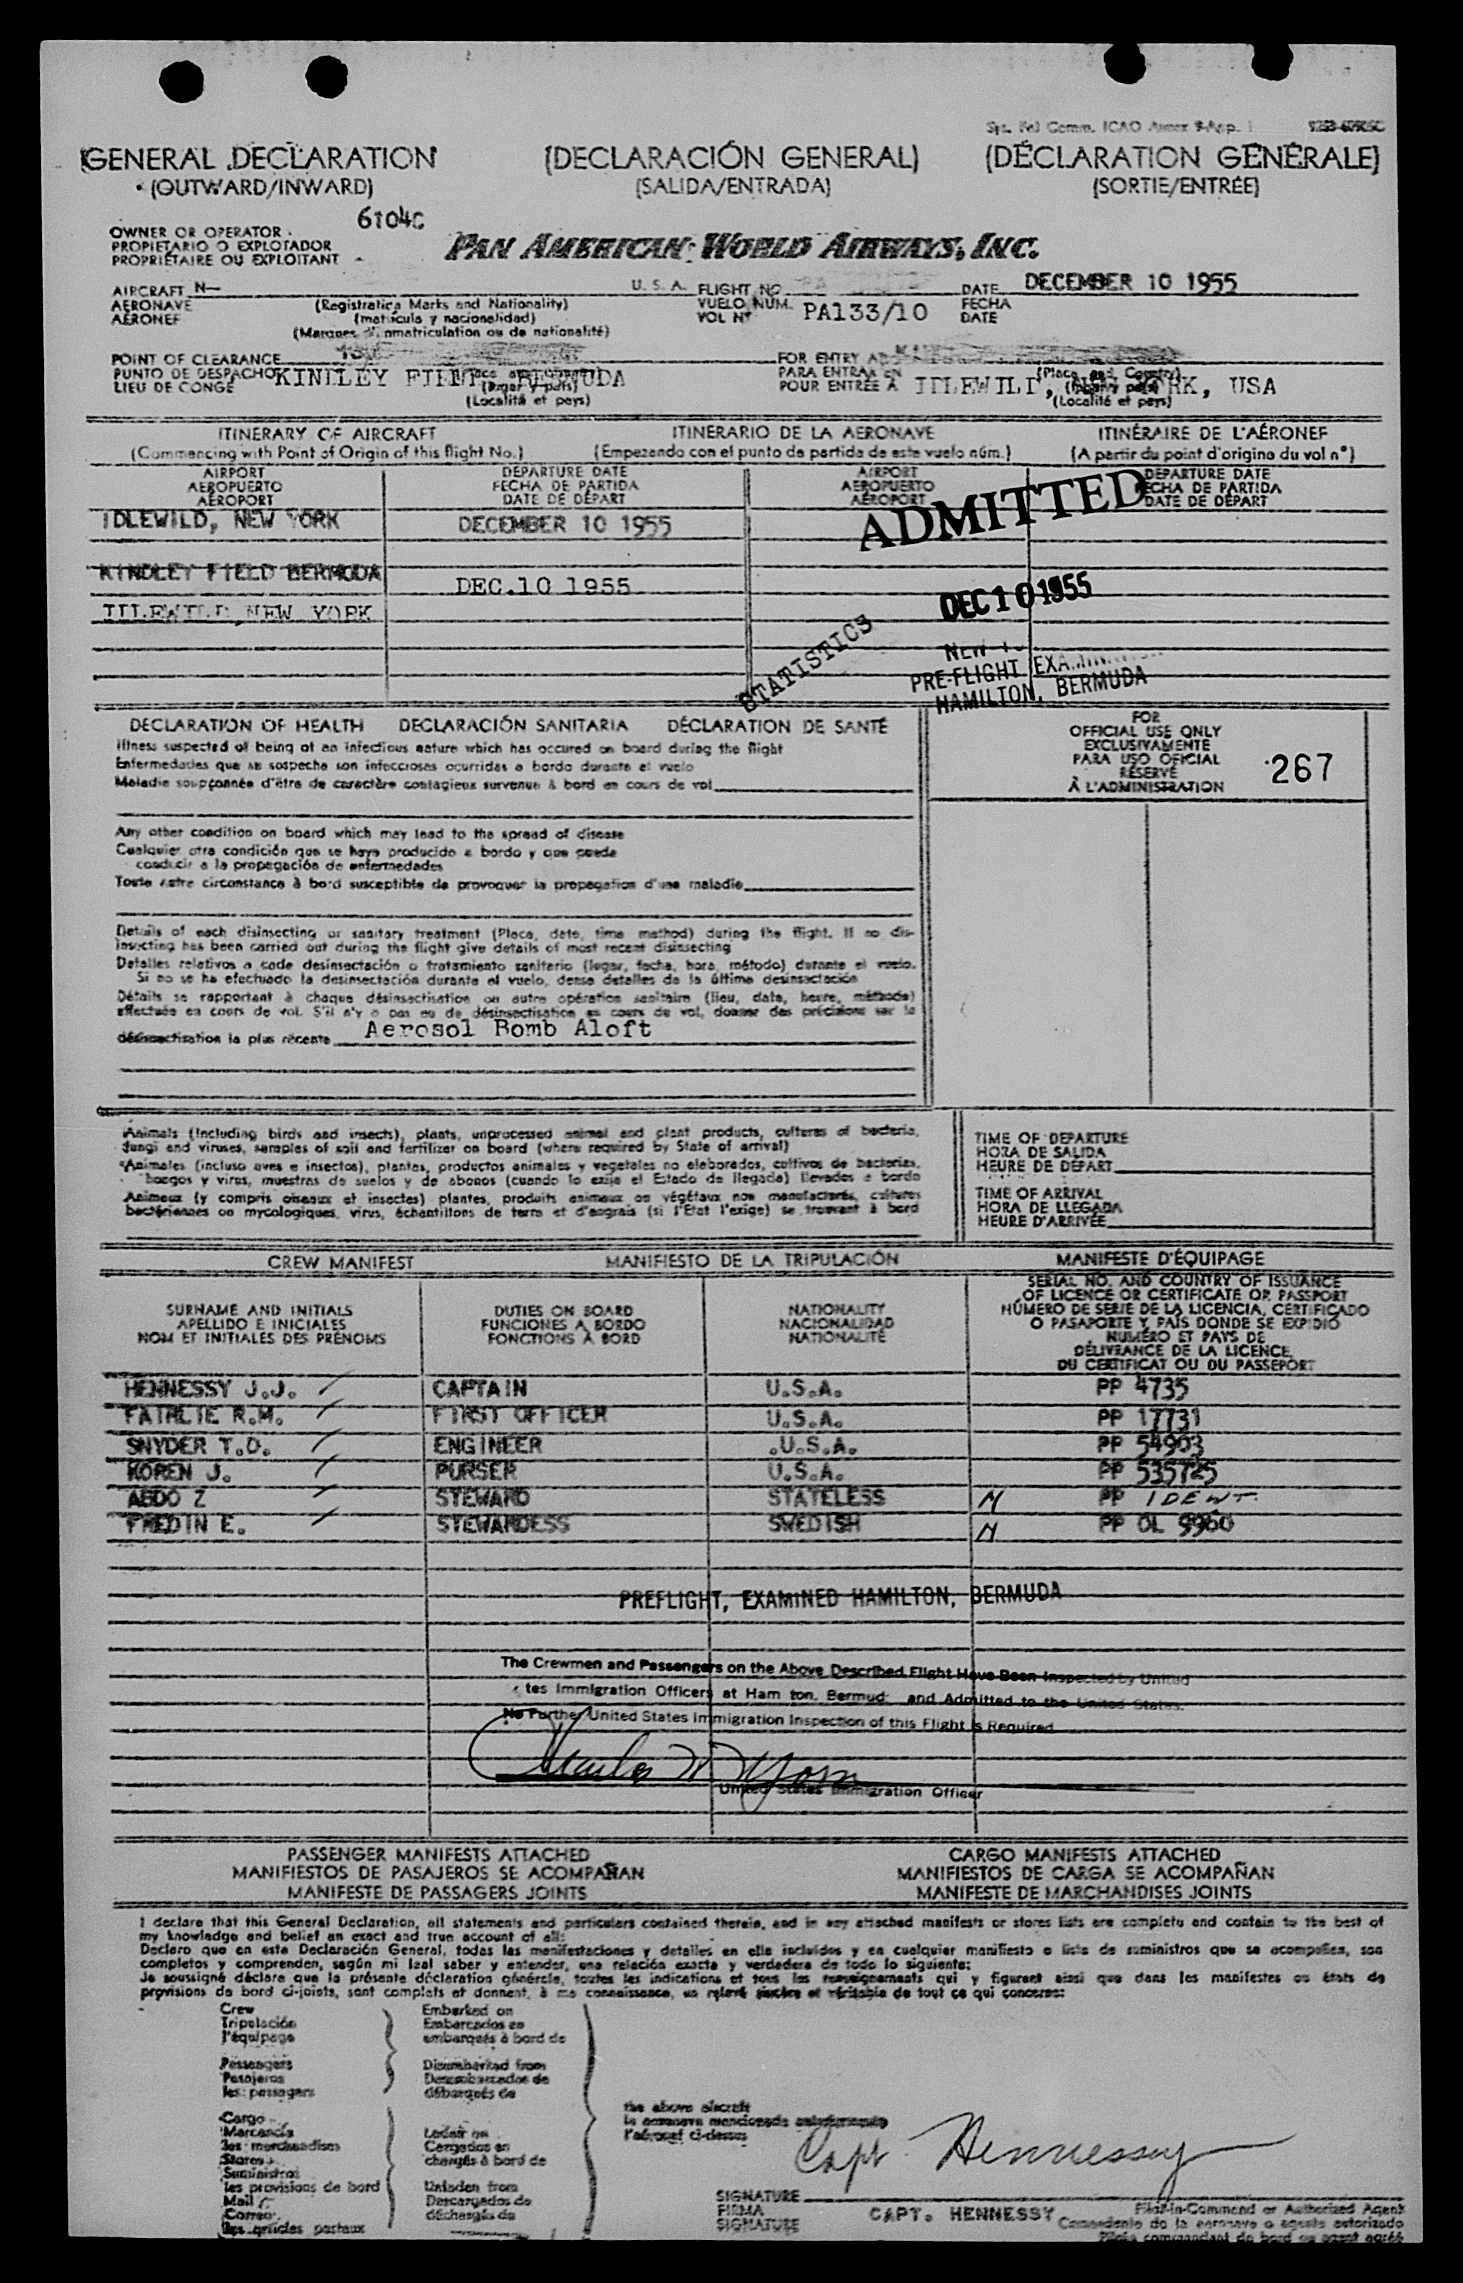 GENERAL DECLARATION (DECLARACIÓN GENERAL) (DÉCLARATION GÉNÉRALE)
(OUTWARD/INWARD) (SALIDA/ENTRADA) (SORTIE/ENTRÉE)
6104C
OWNER OR OPERATOR
PROPIETARIO O EXPLOTADOR
PROPRIÉTAIRE OU EXPLOITANT
PAN AMERICAN WORLD AIRWAYS, INC.
AIRCRAFT N— U. S. A. FLIGHT NO. DATE DECEMBER 10 1955
AERONAVE (Registration Marks and Nationality) VUELO NÚM. PA133/10 FECHA
AÉRONEF (matrícula y nacionalidad) VOL Nº DATE
(Marques d'immatriculation ou de nationalité)
POINT OF CLEARANCE FOR ENTRY AT
PUNTO DE DESPACHO KINDLEY FIELD BERMUDA PARA ENTRAR EN (Place and Country)
LIEU DE CONGÉ POUR ENTRÉE À IDLEWILD, NEW YORK, USA
(Localité et pays) (Localité et pays)
ITINERARY OF AIRCRAFT ITINERARIO DE LA AERONAVE ITINÉRAIRE DE L'AÉRONEF
(Commencing with Point of Origin of this flight No.) (Empezando con el punto de partida de este vuelo núm.) (A partir du point d'origine du vol n°)
AIRPORT DEPARTURE DATE AIRPORT DEPARTURE DATE
AEROPUERTO FECHA DE PARTIDA AEROPUERTO FECHA DE PARTIDA
AÉROPORT DATE DE DÉPART AÉROPORT DATE DE DÉPART
IDLEWILD, NEW YORK DECEMBER 10 1955
ADMITTED
KINDLEY FIELD BERMUDA DEC.10 1955
DEC 10 1955
IDLEWILD, NEW YORK
STATISTICS
PRE-FLIGHT
HAMILTON, BERMUDA
DECLARATION OF HEALTH DECLARACIÓN SANITARIA DÉCLARATION DE SANTÉ
Illness suspected of being of an infectious nature which has occured on board during the flight
Enfermedades que se sospecha son infecciosas ocurridas a bordo durante el vuelo
Maladie soupçonnée d'être de caractère contagieux survenue à bord en cours de vol
FOR
OFFICIAL USE ONLY
EXCLUSIVAMENTE
PARA USO OFICIAL
RÉSERVÉ
À L'ADMINISTRATION
267
Any other condition on board which may lead to the spread of disease
Cualquier otra condición que se haya producido a bordo y que pueda
conducir a la propagación de enfermedades
Toute autre circonstance à bord susceptible de provoquer la propagation d'une maladie
Details of each disinsecting or sanitary treatment (Place, date, time method) during the flight. If no dis-
insecting has been carried out during the flight give details of most recent disinsecting
Detalles relativos a cada desinsectación o tratamiento sanitario (lugar, fecha, hora, método) durante el vuelo.
Si no se ha efectuado la desinsectación durante el vuelo, dense detalles de la última desinsectación
Détails se rapportant à chaque désinsectisation ou autre opération sanitaire (lieu, date, heure, méthode)
effectuée en cours de vol. S'il n'y a pas eu de désinsectisation en cours de vol, donner des précisions sur la
désinsectisation la plus récente Aerosol Bomb Aloft
Animals (including birds and insects), plants, unprocessed animal and plant products, cultures of bacteria,
fungi and viruses, samples of soil and fertilizer on board (where required by State of arrival)
Animales (incluso aves e insectos), plantas, productos animales y vegetales no elaborados, cultivos de bacterias,
hongos y virus, muestras de suelos y de abonos (cuando lo exija el Estado de llegada) llevados a bordo
Animaux (y compris oiseaux et insectes) plantes, produits animaux ou végétaux non manufacturés, cultures
bactériennes ou mycologiques, virus, échantillons de terre et d'engrais (si l'État l'exige) se trouvant à bord
TIME OF DEPARTURE
HORA DE SALIDA
HEURE DE DÉPART
TIME OF ARRIVAL
HORA DE LLEGADA
HEURE D'ARRIVÉE
CREW MANIFEST MANIFIESTO DE LA TRIPULACIÓN MANIFESTE D'ÉQUIPAGE
SURNAME AND INITIALS
APELLIDO E INICIALES
NOM ET INITIALES DES PRÉNOMS
DUTIES ON BOARD
FUNCIONES A BORDO
FONCTIONS À BORD
NATIONALITY
NACIONALIDAD
NATIONALITÉ
SERIAL NO. AND COUNTRY OF ISSUANCE
OF LICENCE OR CERTIFICATE OR PASSPORT
NÚMERO DE SERIE DE LA LICENCIA, CERTIFICADO
O PASAPORTE Y PAÍS DONDE SE EXPIDIÓ
NUMÉRO ET PAYS DE
DÉLIVRANCE DE LA LICENCE,
DU CERTIFICAT OU DU PASSEPORT
HENNESSY J.J. CAPTAIN U.S.A. PP 4735
FAIRLIE R.M. FIRST OFFICER U.S.A. PP 17731
SNYDER T.D. ENGINEER U.S.A. PP 54903
KOREN J. PURSER U.S.A. PP 535725
ABDO Z STEWARD STATELESS M PP IDENT.
FREDIN E. STEWARDESS SWEDISH M PP OL 9960
PREFLIGHT, EXAMINED HAMILTON, BERMUDA
The Crewmen and Passengers on the Above Described Flight Have Been Inspected by United
tes Immigration Officers at Ham ton, Bermud and Admitted to the United States.
No Further United States Immigration Inspection of this Flight is Required
United States Immigration Officer
PASSENGER MANIFESTS ATTACHED CARGO MANIFESTS ATTACHED
MANIFIESTOS DE PASAJEROS SE ACOMPAÑAN MANIFIESTOS DE CARGA SE ACOMPAÑAN
MANIFESTE DE PASSAGERS JOINTS MANIFESTE DE MARCHANDISES JOINTS
I declare that this General Declaration, all statements and particulars contained therein, and in any attached manifests or stores lists are complete and contain to the best of
my knowledge and belief an exact and true account of all:
Declaro que en esta Declaración General, todas las manifestaciones y detalles en ella incluidos y en cualquier manifiesto o lista de suministros que se acompañen, son
completos y comprenden, según mi leal saber y entender, una relación exacta y verdadera de todo lo siguiente:
Je soussigné déclare que la présente déclaration générale, toutes les indications et tous les renseignements qui y figurent ainsi que dans les manifestes ou états de
provisions de bord ci-joints, sont complets et donnent, à ma connaissance, un relevé sincère et véritable de tout ce qui concerne:
Crew Embarked on
Tripulación Embarcados en
l'équipage embarqués à bord de
Passengers Disembarked from
Pasajeros Desembarcados de
les passagers débarqués de
the above aircraft
la aeronave mencionada anteriormente
l'aéronef ci-dessus
Cargo
Mercancía Loaded on
les marchandises Cargados en
Stores chargés à bord de
Suministros
les provisions de bord Unloaded from
Mail Descargados de
Correo déchargés de
les articles postaux
Capt Hennessy
SIGNATURE
FIRMA CAPT. HENNESSY Pilot-in-Command or Authorized Agent
SIGNATURE Comandante de la aeronave o agente autorizado
Pilote commandant de bord ou agent agréé